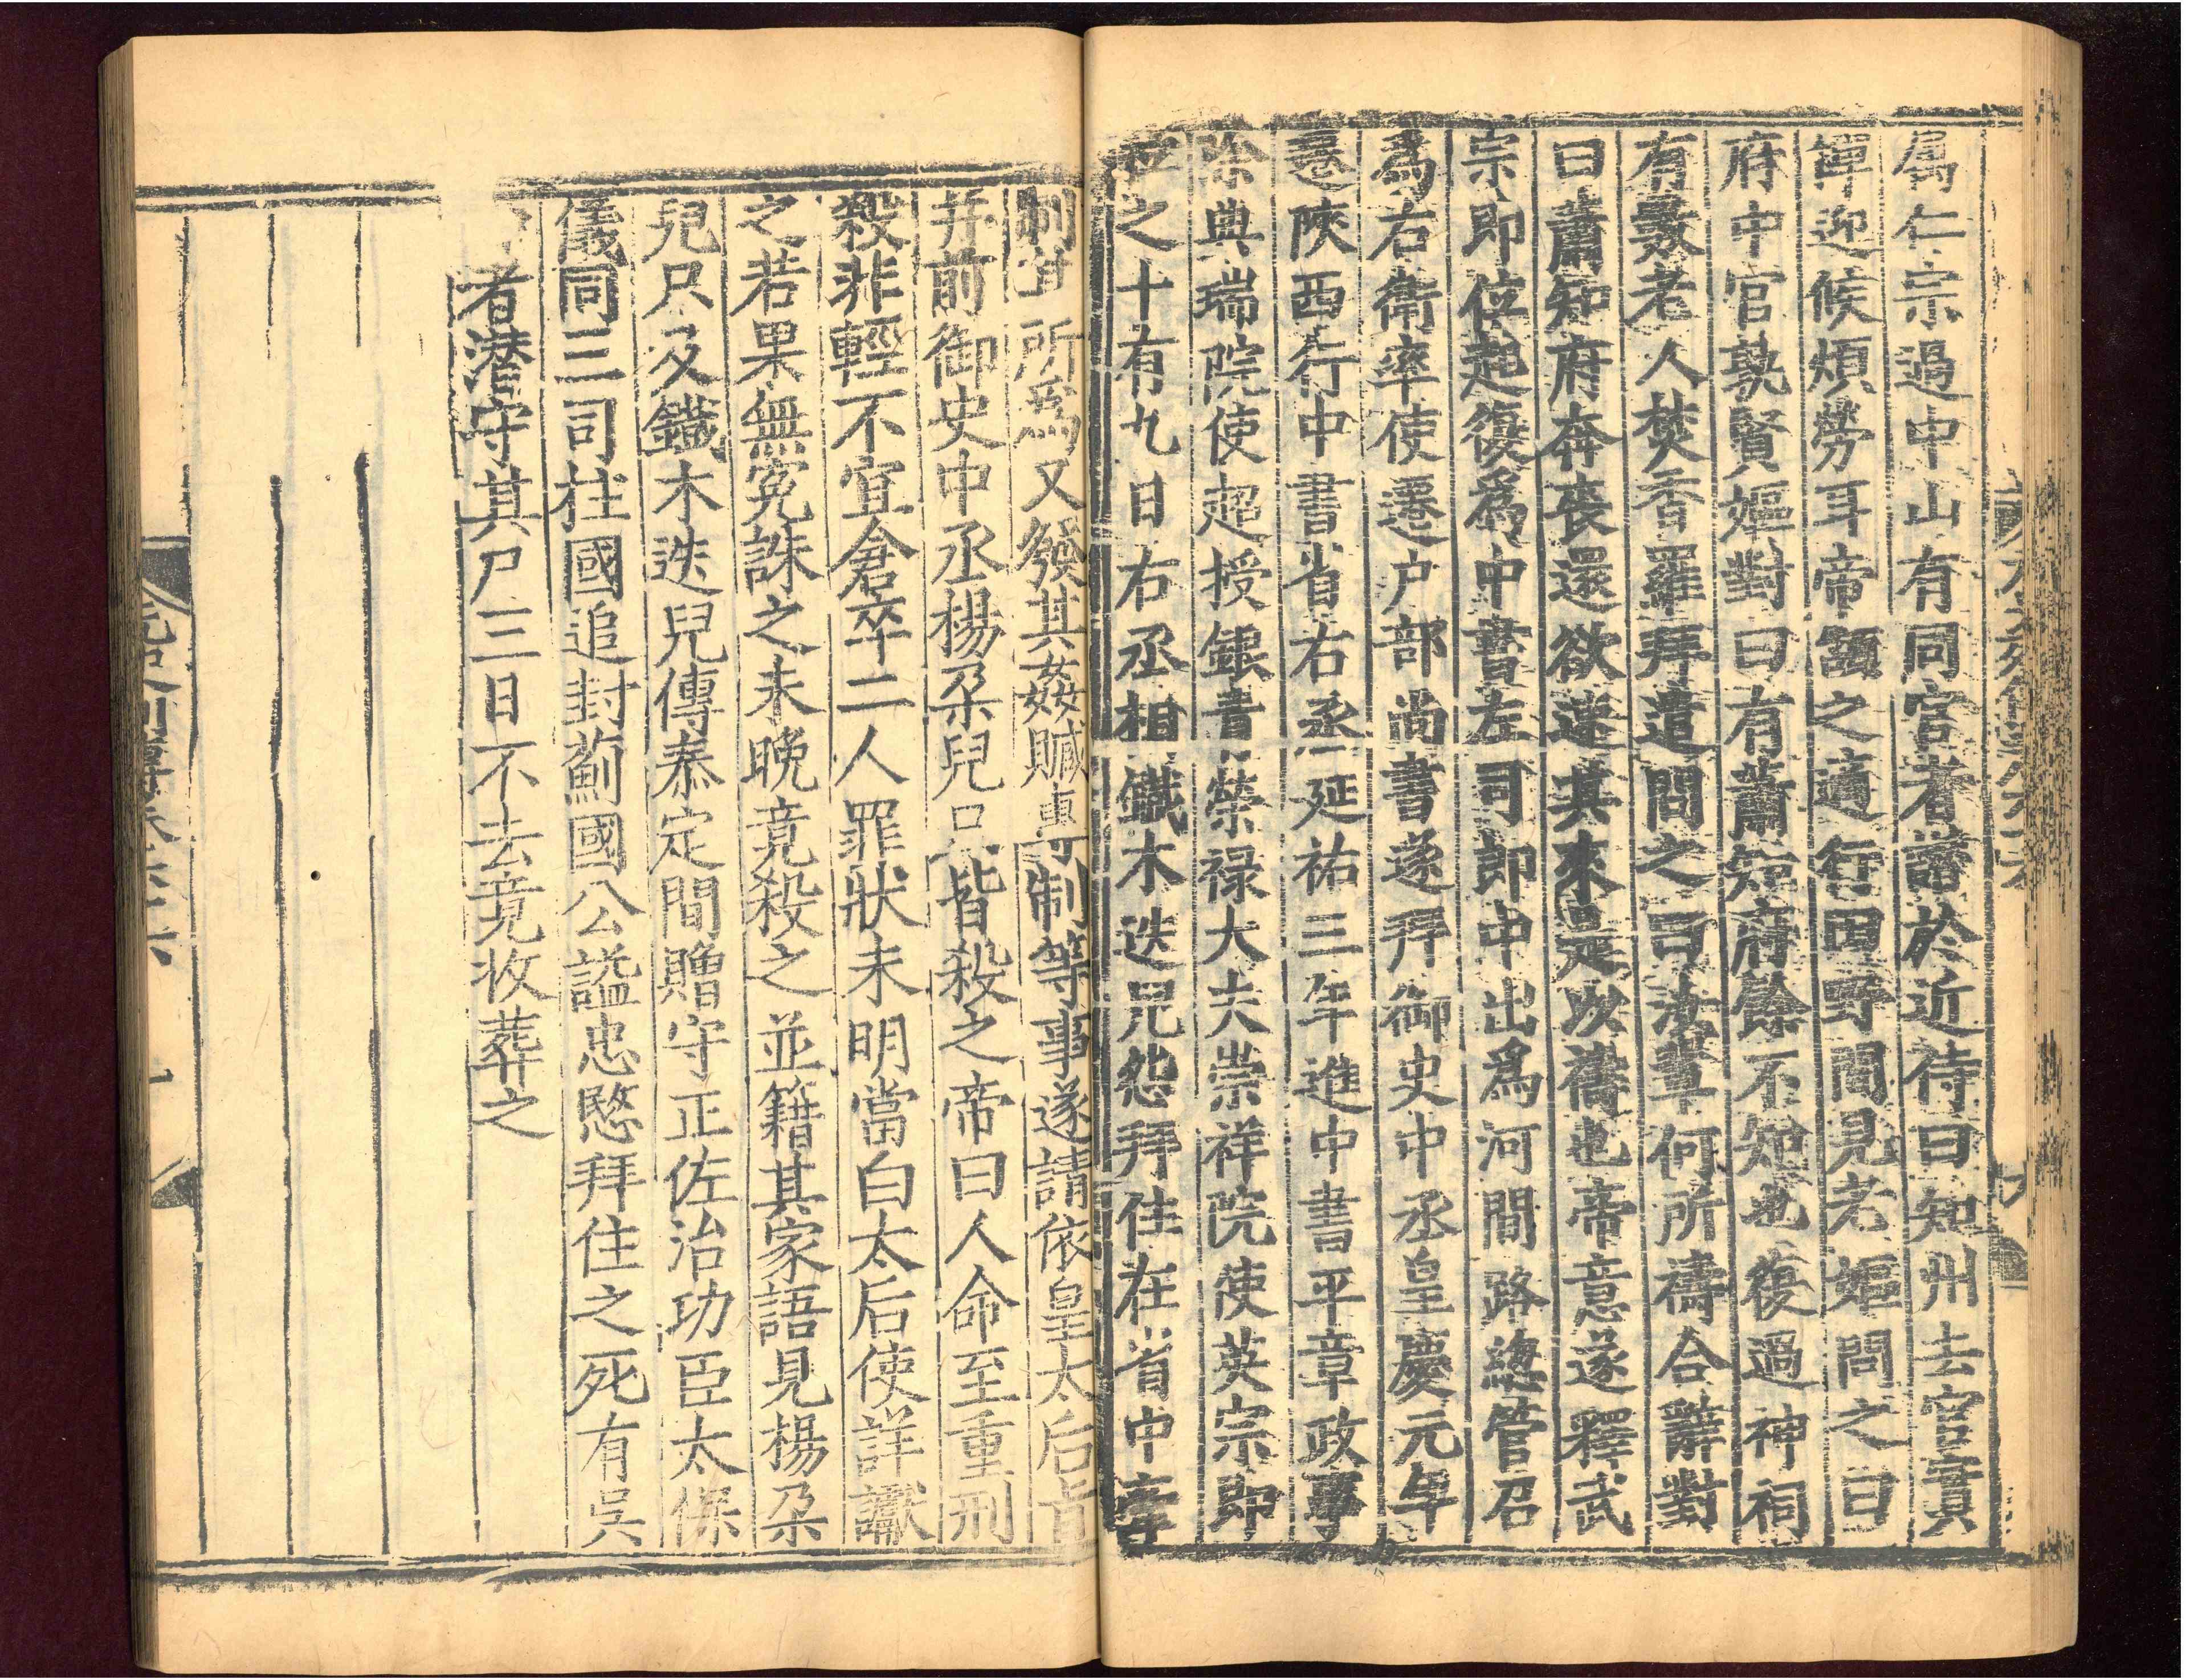 屬仁宗過中山有同官者譖於近侍曰知州去官實
憚迎候煩勞耳帝頷之適行田野間見老嫗問之曰
府中官孰賢嫗對曰有蕭知府餘不知也復過神祠
有數老人焚香羅拜遣問之曰汝輩何所禱合辭對
曰蕭知府奔喪還欲速其來是以禱也帝意遂釋武
宗即位起復爲中書左司郎中出爲河間路緫管召
爲右衛率使遷户部尚書遂拜御史中丞皇慶元年
遷陜西行中書省右丞延祐三年進中書平章政事
除典瑞院使超授銀青榮禄大夫崇祥院使英宗即
位之十有九日右丞相鐵木迭兒怨拜住在省中牽
制其所爲又發其姦贓專制等事遂請依皇太后旨
并前御史中丞楊朶兒只皆殺之帝曰人命至重刑
殺非輕不宜倉卒二人罪狀未明當白太后使詳讞
之若果無寃誅之未晚竟殺之並籍其家語見楊朶
兒只及鐵木迭兒傳泰定間贈守正佐治功臣太保
儀同三司柱國追封薊國公謚忠愍拜住之死有吳
者潜守其尸三日不去竟收葬之
元史列傳卷六十六